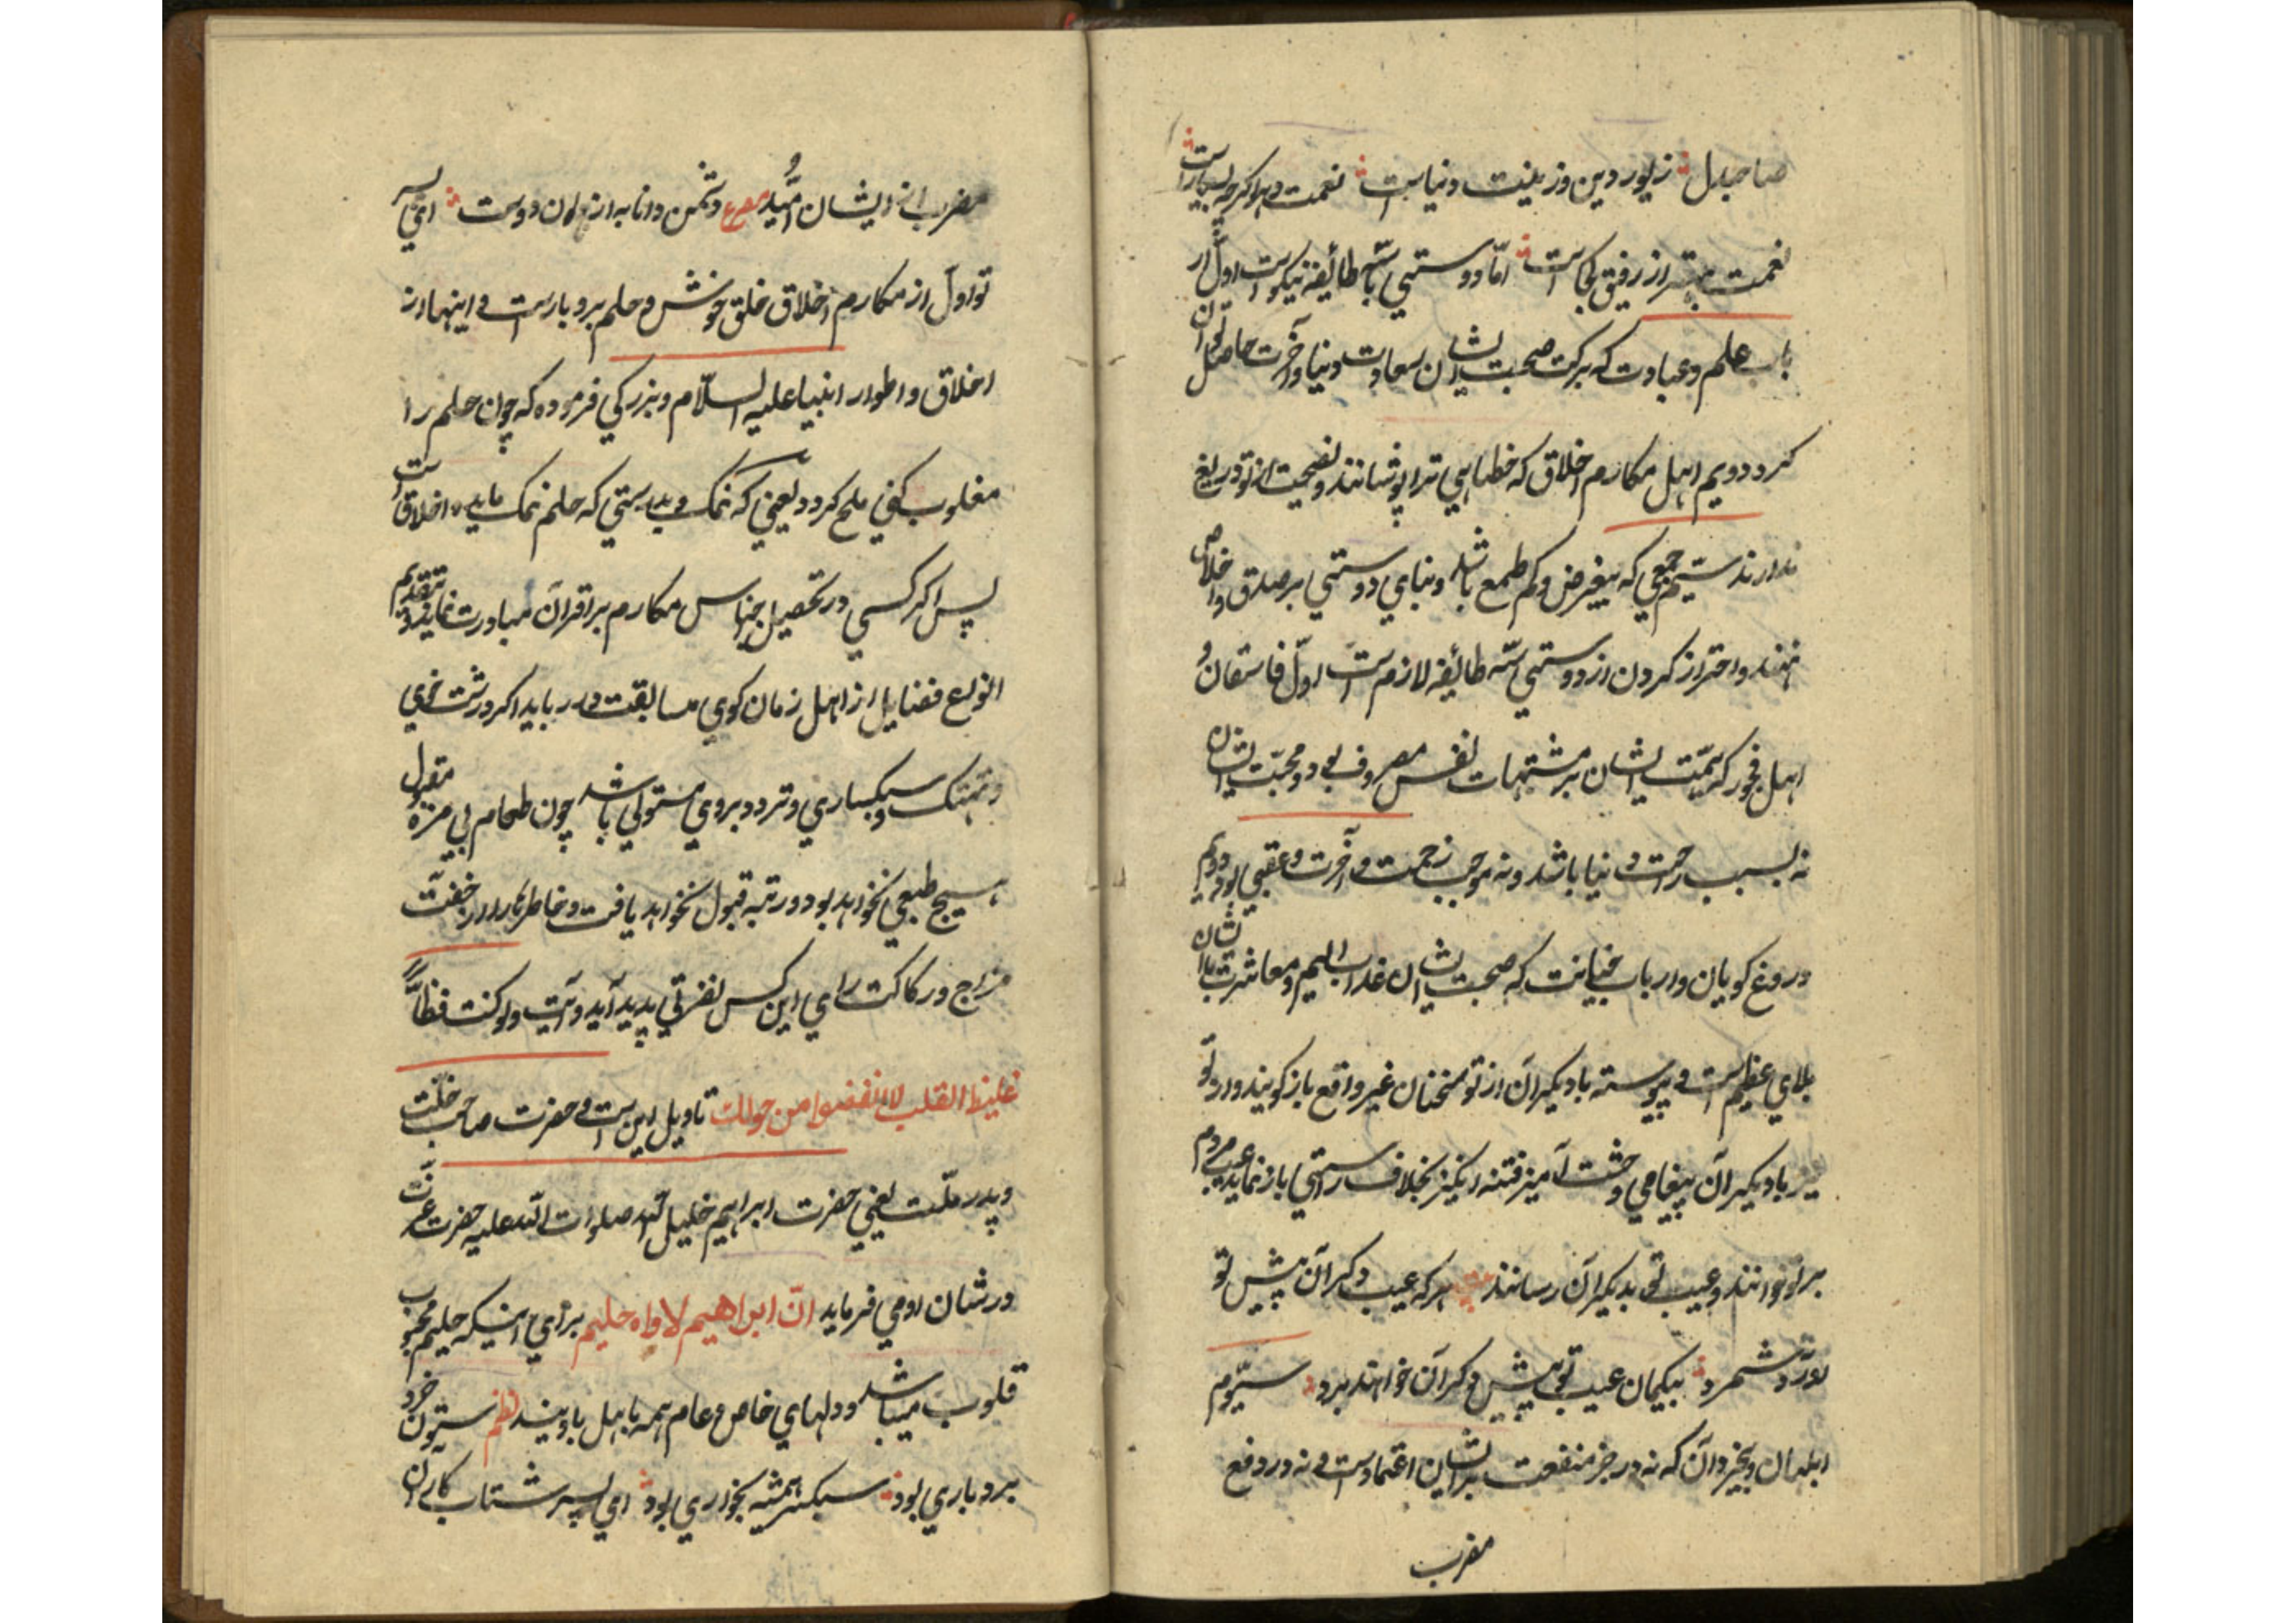 صاحبدل زیور دین و زینت دنیاست نعمت دهر اکرچه بسیارست
نعمت بهتر از رفیق کجاست امّا دوستی با سه طائفه نیکوست اول ار
باب علم و عبادت که ببرکت صحبت ایشان سعادت دنیا و آخرت حاصل توان
کرد دویم اهل مکارم اخلاق که خطاهای ترا پوشانند و نصیحت از تو دریغ
ندارند سیم جمعی که بیغرض و کم طمع باشد و بنای دوستی بر صدق و اخلاص
نهند و احتراز کردن از دوستی سه طائفه لازم است اول فاسقان و
اهل فجور که همّت ایشان بر مشتهیات نفس مصروف بود و محبّت ایشان
نه بسبب راحت دنیا باشد و نه موجب رحمت آخرت و عقبی بود دویم
دروغ کویان و ارباب خیانت که صحبت ایشان عذاب الیم و معاشرت با ایشان
بلای عظیم است و پیوسته با دیکران از تو سخنان غیر واقع باز کویند و از تو
نیز با دیکران پیغامی وحشت آمیز فتنه انکیز بخلاف راستی باز نماید عیب مردم
بر تو خوانند و عیب تو بدیکران رسانند هر که عیب دکران پیش تو
آورد و شمرد بیکمان عیب تو پیش دکران خواهد برد سیّوم
ابلهان و بیخردان که نه در جر منفعت بر ایشان اعتمادست و نه در دفع
مضرت
مضرت از ایشان امّید مصرع دشمن دانا به از نادان دوست ای پسر
تو اول از مکارم اخلاق خلق خوش و حلم بردبارست و اینها از
اخلاق و اطوار انبیا علیه السلام و بزرکی فرموده که چون حلم را
مغلوب کنی ملح کردد یعنی که نمک و بدرستی که حلم نمک مایده اخلاق است
پس اکر کسی در تحصیل اجناس مکارم بر اقران مبادرت نماید و بتقدیم
انواع فضایل از اهل زمان کوی مسابقت در رباید اکر درشت خوی
و تهتک و سبکساری و تردد بروی مستولی باشد چون طعام بی مزه مقبول
هیچ طبعی نخواهد بود و رتبه قبول نخواهد یافت و خاطرها را از خفّت
مزاج و رکاکت رای این کس نفرتی پدید آید و آیت ولو کنت فظاً
غلیظ القلب لانفضوا من حولک تاویل این است و حضرت صاحب خلّت
و پدر ملّت یعنی حضرت ابراهیم خلیل الله صلوات الله علیه حضرت عزّت
در شان او می فرماید انّ ابراهیم لاواه حلیم برای اینکه حلیم محبوب
قلوب میباشد و دلهای خاص و عام همه باهل باویند نظم ستون خرد
بردباری بود سبکسر همیشه بخواری بود ای پسر شتاب کار آن